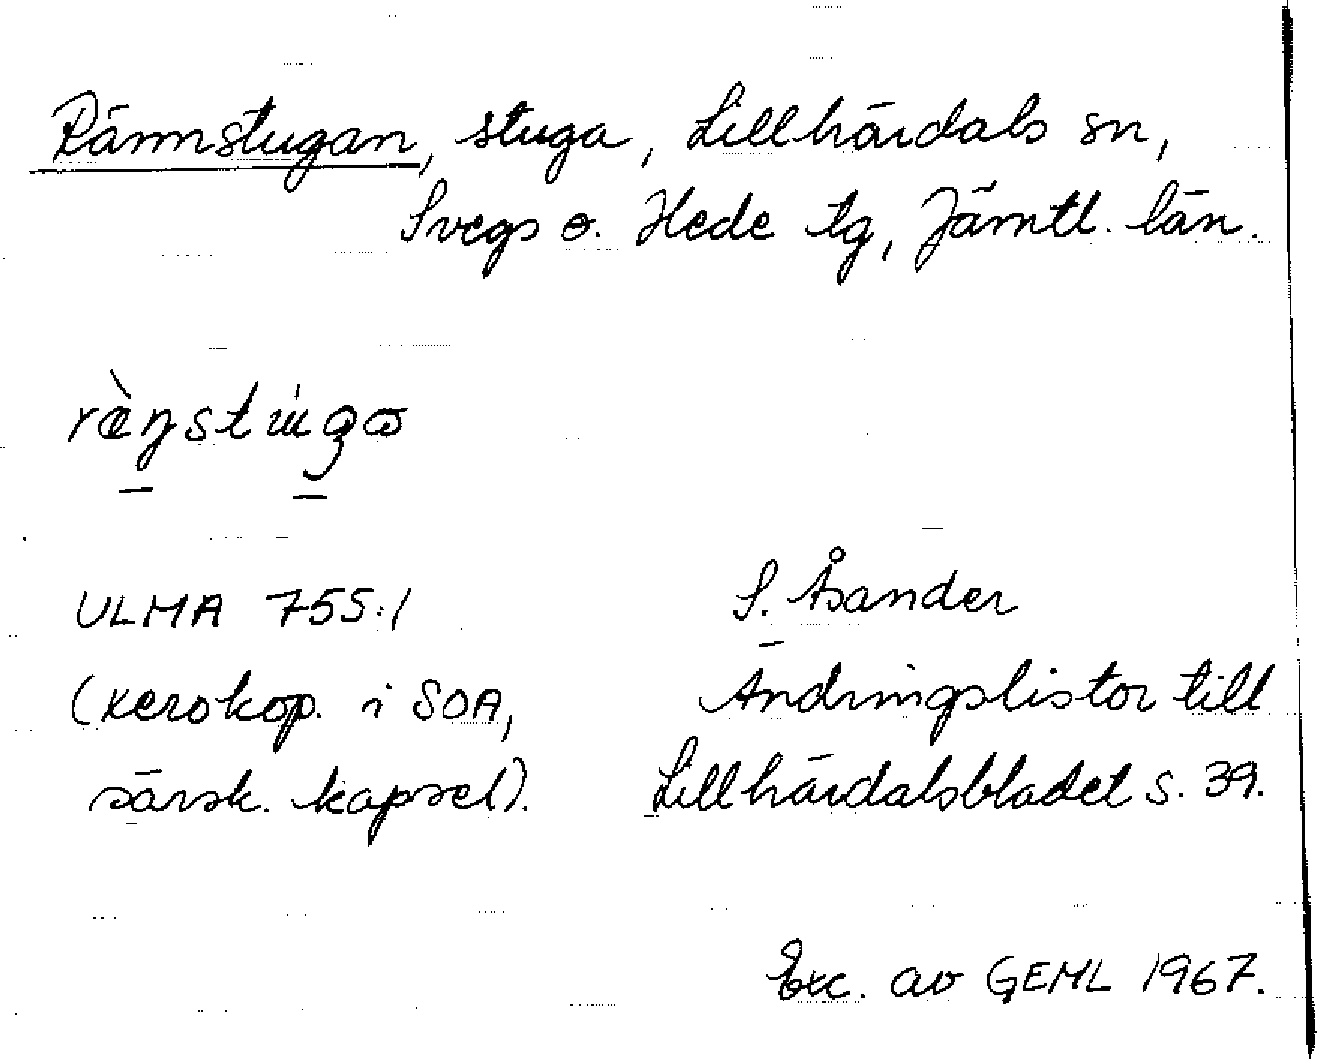 Rännstugan, stuga, Lillhärdals sn,
Svegs o. Hede tg, Jämtl. län.
ULMA 755:1
(xerokop. i SOA,
särsk. kapsel).
S. Åsander
Ändringslistor till
Lillhärdalsbladet s. 39.
Exc. av GEML 1967.